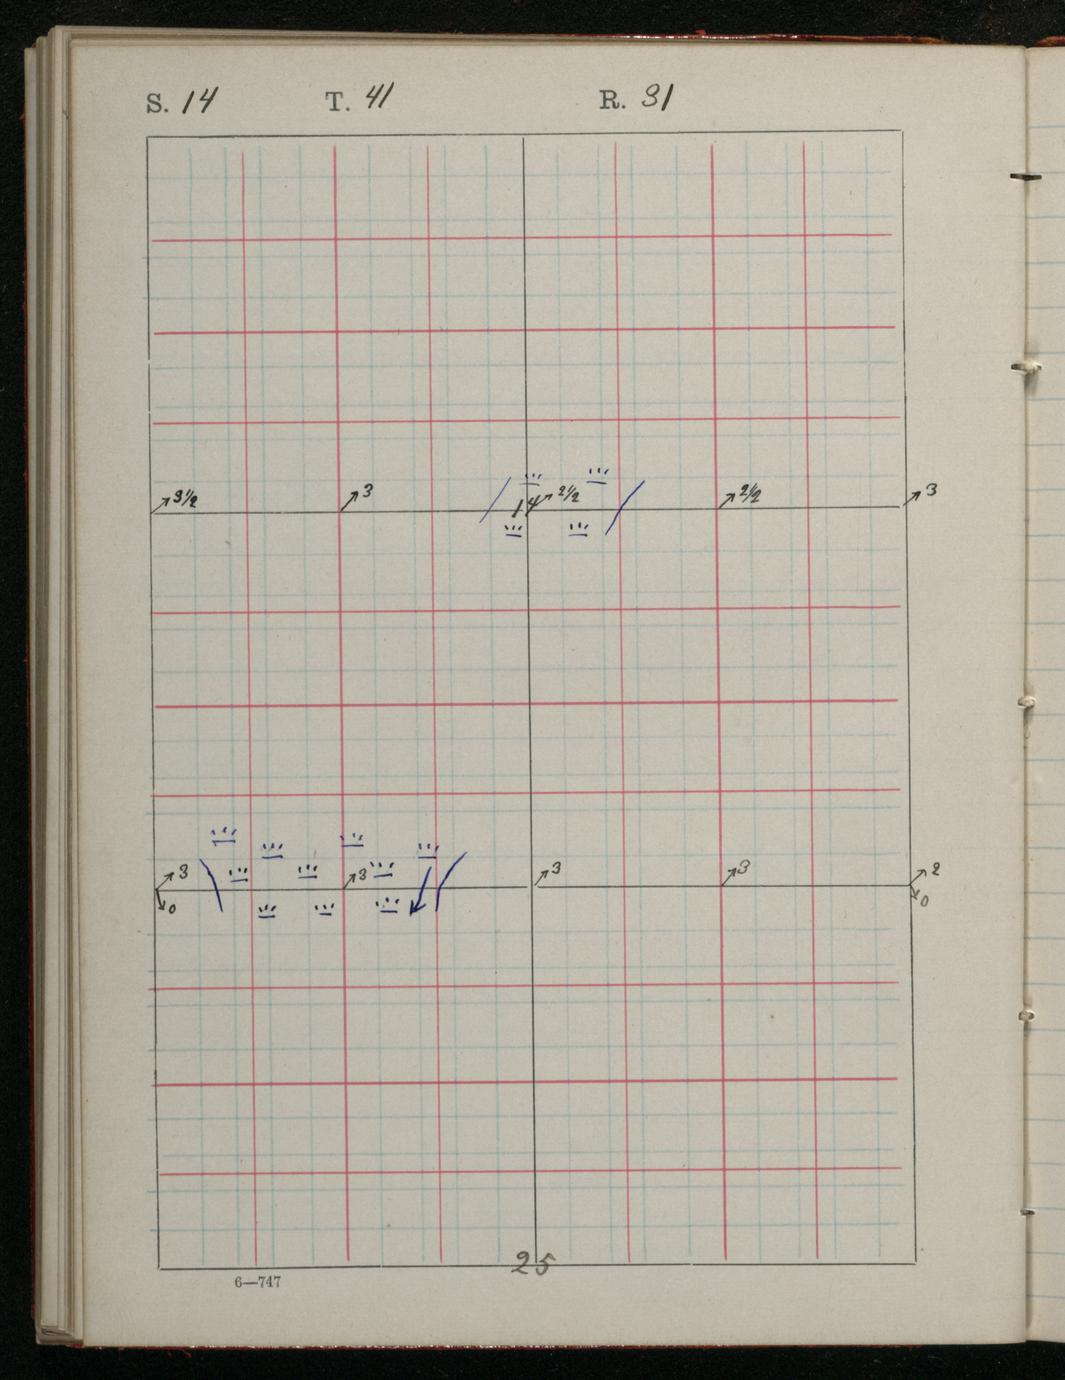 S. 14 T. 41 R. 31
3½ 3 14 2½ 2½ 3
3 3 3 3 2
0 0
25
6—747